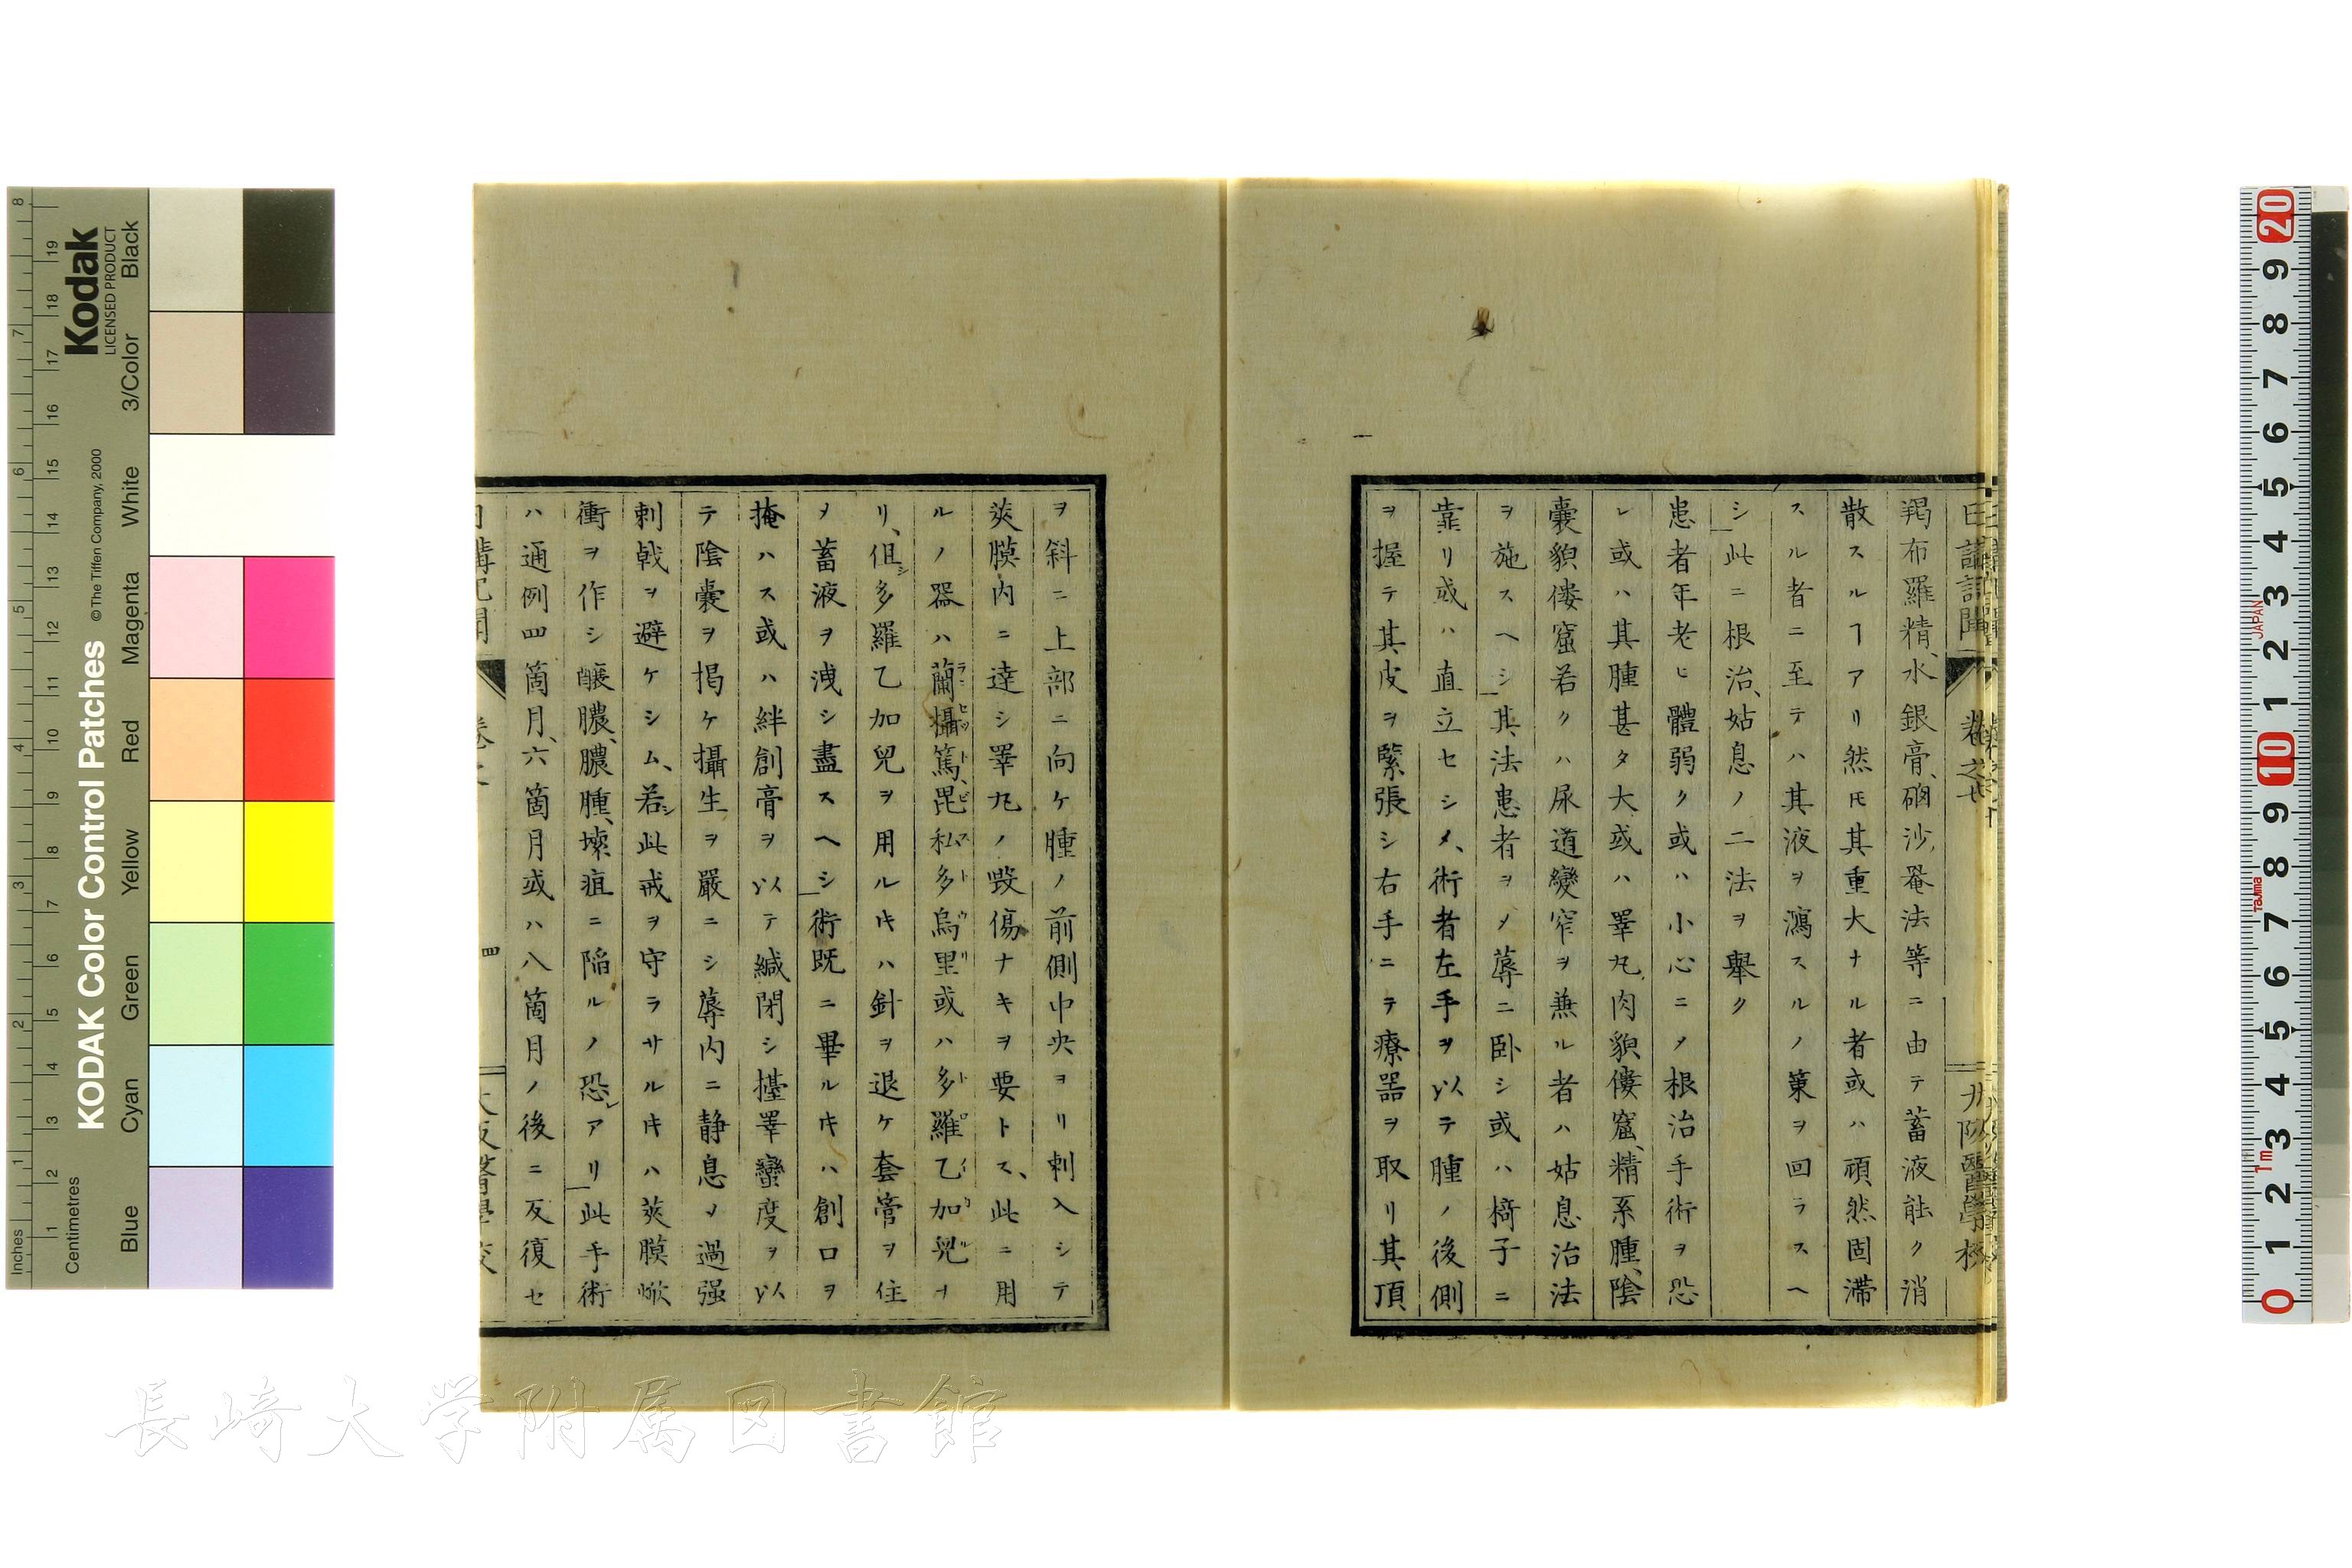 日講記聞
卷之七
大阪醫學校
羯布羅精、水銀膏、硇沙、罨法等ニ由テ蓄液能ク消
散スルヿアリ然𪜈其重大ナル者或ハ頑然固滯
スル者ニ至テハ其液ヲ瀉スルノ策ヲ回ラスヘ
シ此ニ根治、姑息ノ二法ヲ舉ク
患者年老ヒ體弱ク或ハ小心ニメ根治手術ヲ恐
レ或ハ其腫甚タ大、或ハ睪丸、肉貌僂窟、精系腫、陰
囊貌僂窟若クハ尿道變窄ヲ兼ル者ハ姑息治法
ヲ施スヘシ其法患者ヲメ蓐ニ卧シ或ハ椅子ニ
靠リ或ハ直立セシメ、術者左手ヲ以テ腫ノ後側
ヲ握テ其皮ヲ緊張シ右手ニテ療器ヲ取リ其頂
ヲ斜ニ上部ニ向ケ腫ノ前側中央ヨリ刺入シテ
莢膜内ニ達シ睪丸ノ毀傷ナキヲ要トス、此ニ用
ルノ器ハ蘭攝篤、毘私多烏里或ハ多羅乙加兒ナ
リ、但シ多羅乙加兒ヲ用ルキハ針ヲ退ケ套管ヲ住
メ蓄液ヲ洩シ盡スヘシ術既ニ畢ルキハ創口ヲ
掩ハス或ハ絆創膏ヲ以テ緘閉シ擡睪鑾度ヲ以
テ陰囊ヲ揭ケ攝生ヲ嚴ニシ蓐内ニ静息メ過强
刺戟ヲ避ケシム、若シ此戒ヲ守ラサルキハ莢膜焮
衝ヲ作シ釀膿、膿腫、壞疽ニ陷ルノ恐レアリ此手術
ハ通例四箇月、六箇月或ハ八箇月ノ後ニ反復セ
四
Kodak
LICENSED PRODUCT
KODAK Color Control Patches
© The Tiffen Company, 2000
Inches
Centimetres
Blue Cyan Green Yellow Red Magenta White 3/Color Black
JAPAN
Tajima
1m
長崎大学附属図書館